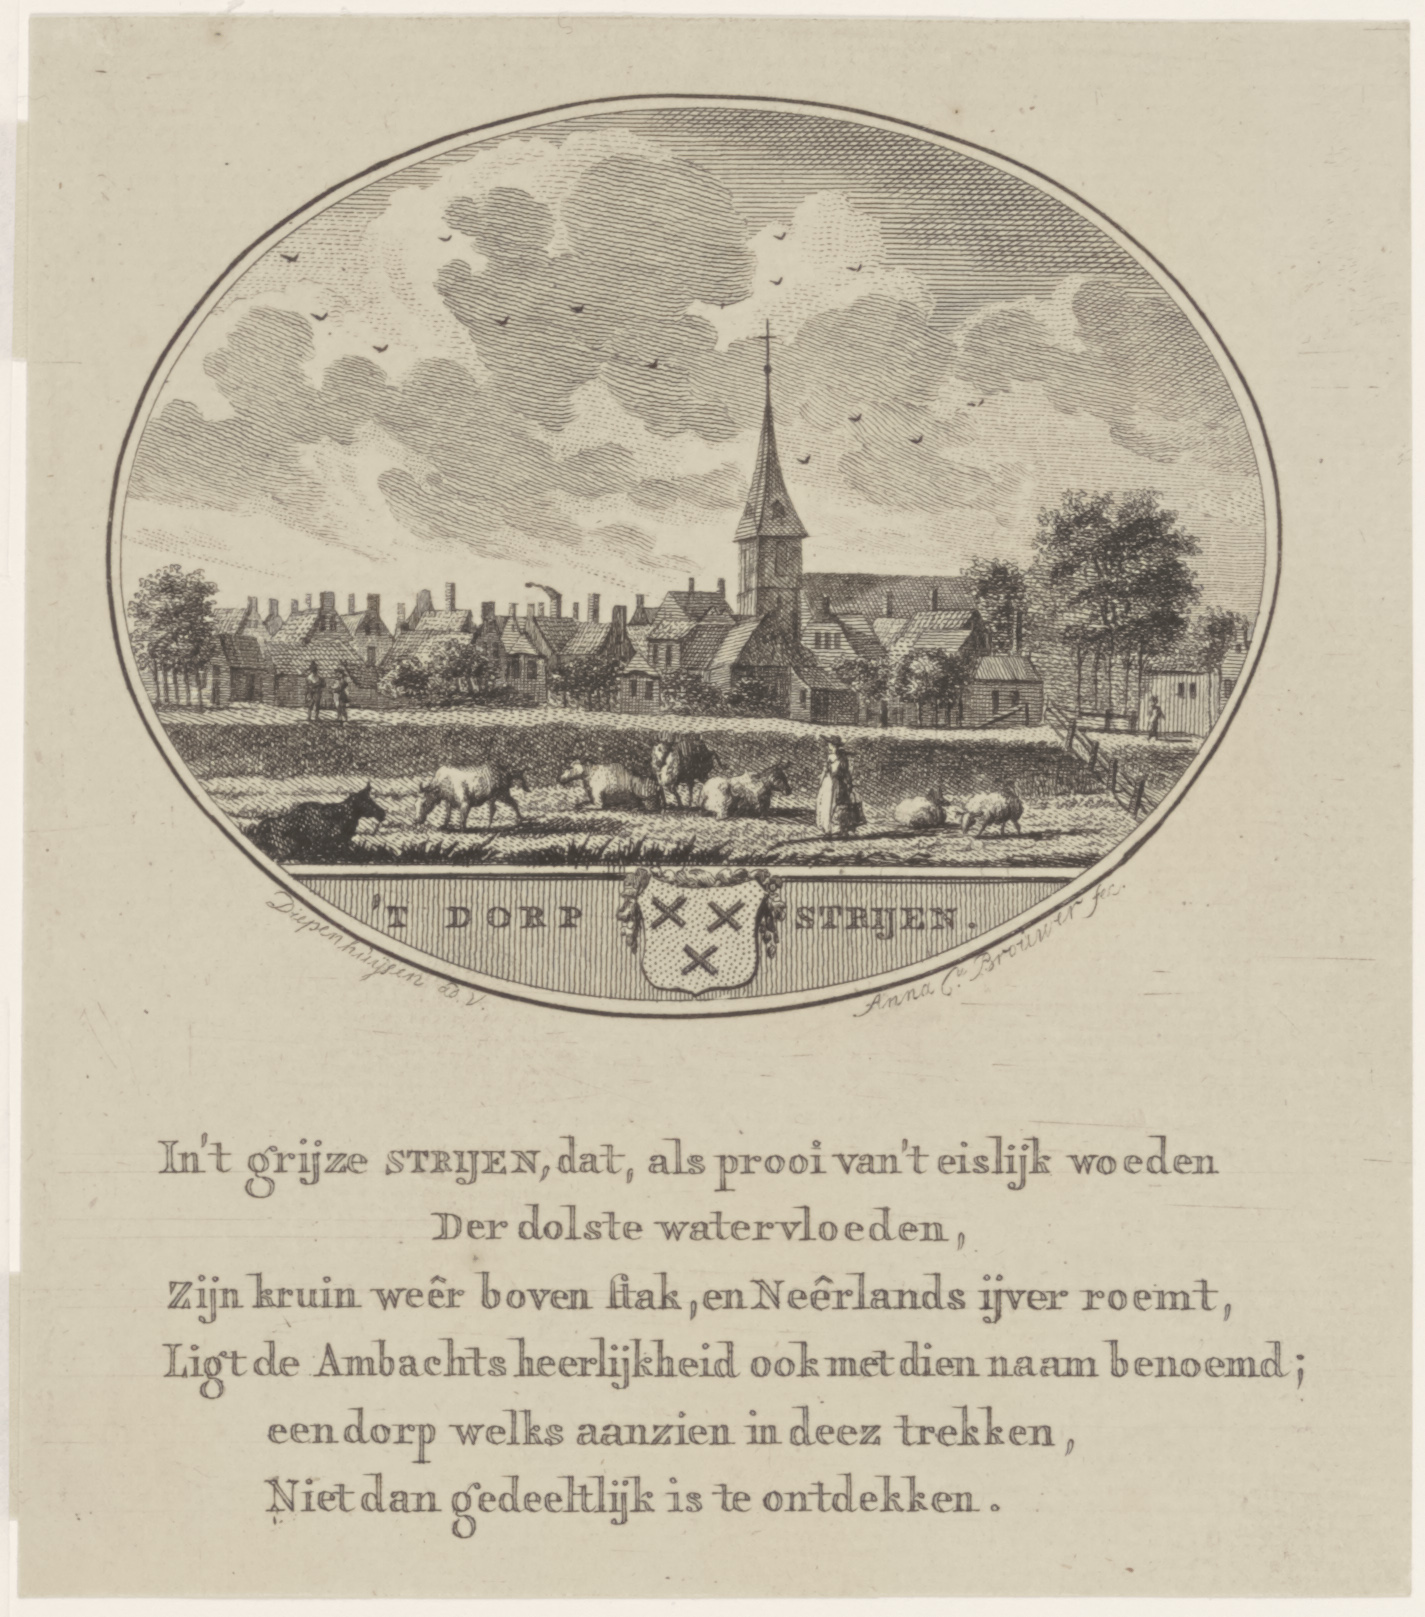 'T DORP STRIJEN.
Diepenhuysen ad. v.
Anna C.a Brouwer fec.
In't grijze STRIJEN, dat, als prooi van't eislijk woeden
Der dolste watervloeden,
Zijn kruin weêr boven stak, en Neêrlands ijver roemt,
Ligt de Ambachtsheerlijkheid ook met dien naam benoemd;
een dorp welks aanzien in deez trekken,
Niet dan gedeeltlijk is te ontdekken.